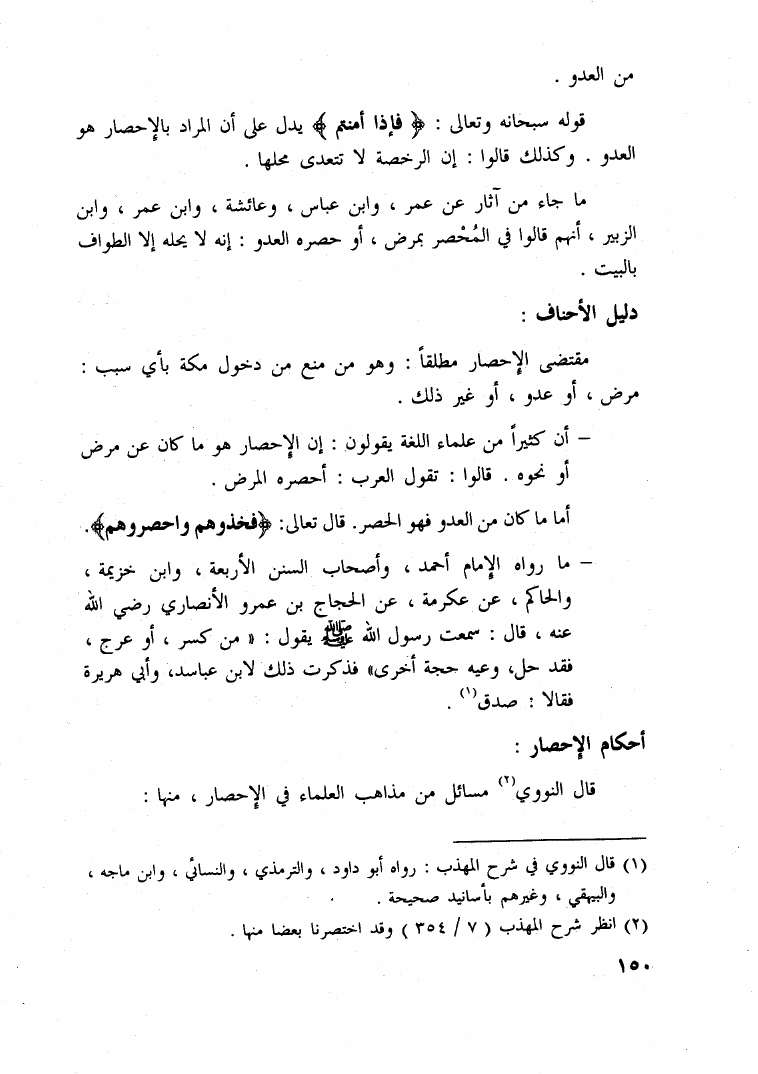 من العدو .
قوله سبحانه وتعالى : ﴿ فإذا أمنتم ﴾ يدل على أن المراد بالإحصار هو
العدو . وكذلك قالوا : إن الرخصة لا تتعدى محلها .
ما جاء من آثار عن عمر ، وابن عباس ، وعائشة ، وابن عمر ، وابن
الزبير ، أنهم قالوا في المُحْصر بمرض ، أو حصره العدو : إنه لا يحله إلا الطواف
بالبيت .
دليل الأحناف :
مقتضى الإحصار مطلقاً : وهو من منع من دخول مكة بأي سبب :
مرض ، أو عدو ، أو غير ذلك .
– أن كثيراً من علماء اللغة يقولون : إن الإحصار هو ما كان عن مرض
أو نحوه . قالوا : تقول العرب : أحصره المرض .
أما ما كان من العدو فهو الحصر. قال تعالى: ﴿فخذوهم واحصروهم﴾.
– ما رواه الإمام أحمد ، وأصحاب السنن الأربعة ، وابن خزيمة ،
والحاكم ، عن عكرمة ، عن الحجاج بن عمرو الأنصاري رضي الله
عنه ، قال : سمعت رسول الله ﷺ يقول : « من كسر ، أو عرج ،
فقد حل، وعيه حجة أخرى» فذكرت ذلك لابن عباسد، وأبي هريرة
فقالا : صدق(١) .
أحكام الإحصار :
قال النووي(٢) مسائل من مذاهب العلماء في الإحصار ، منها :
(١) قال النووي في شرح المهذب : رواه أبو داود ، والترمذي ، والنسائي ، وابن ماجه ،
والبيهقي ، وغيرهم بأسانيد صحيحة .
(٢) انظر شرح المهذب ( ٧ / ٣٥٤ ) وقد اختصرنا بعضا منها .
١٥٠